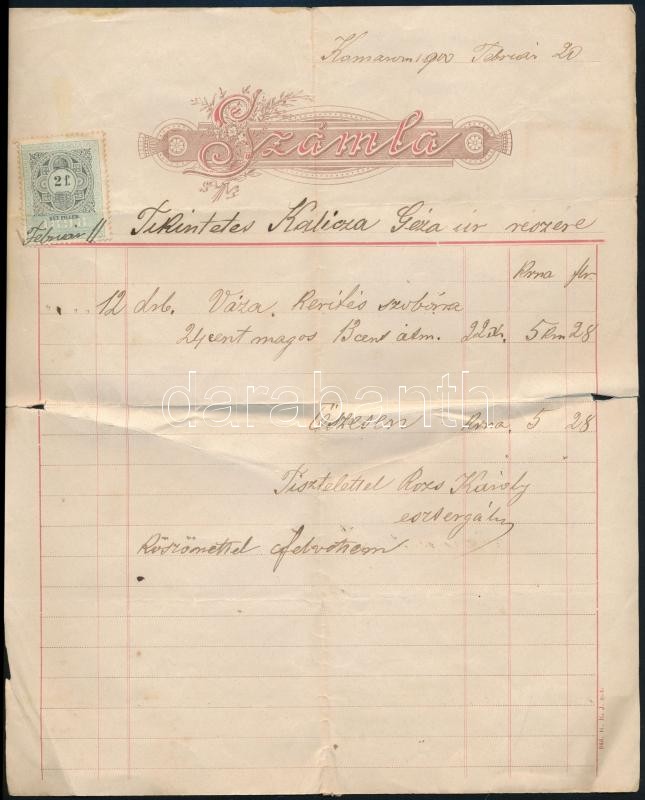 Komarom 1900 Február 20
Számla
2 f.
KÉT FILLÉR
Február 11
Tekintetes Kalicza Géza úr reszére
Krna flr.
12 drb. Váza. Kerítés szobórra
24 cent magos 13 cent átm. 22 5 28
darabanth
Öszesen Krna. 5 28
Tisztelettel Rozs Károly
esztergály
Köszönettel felvettem